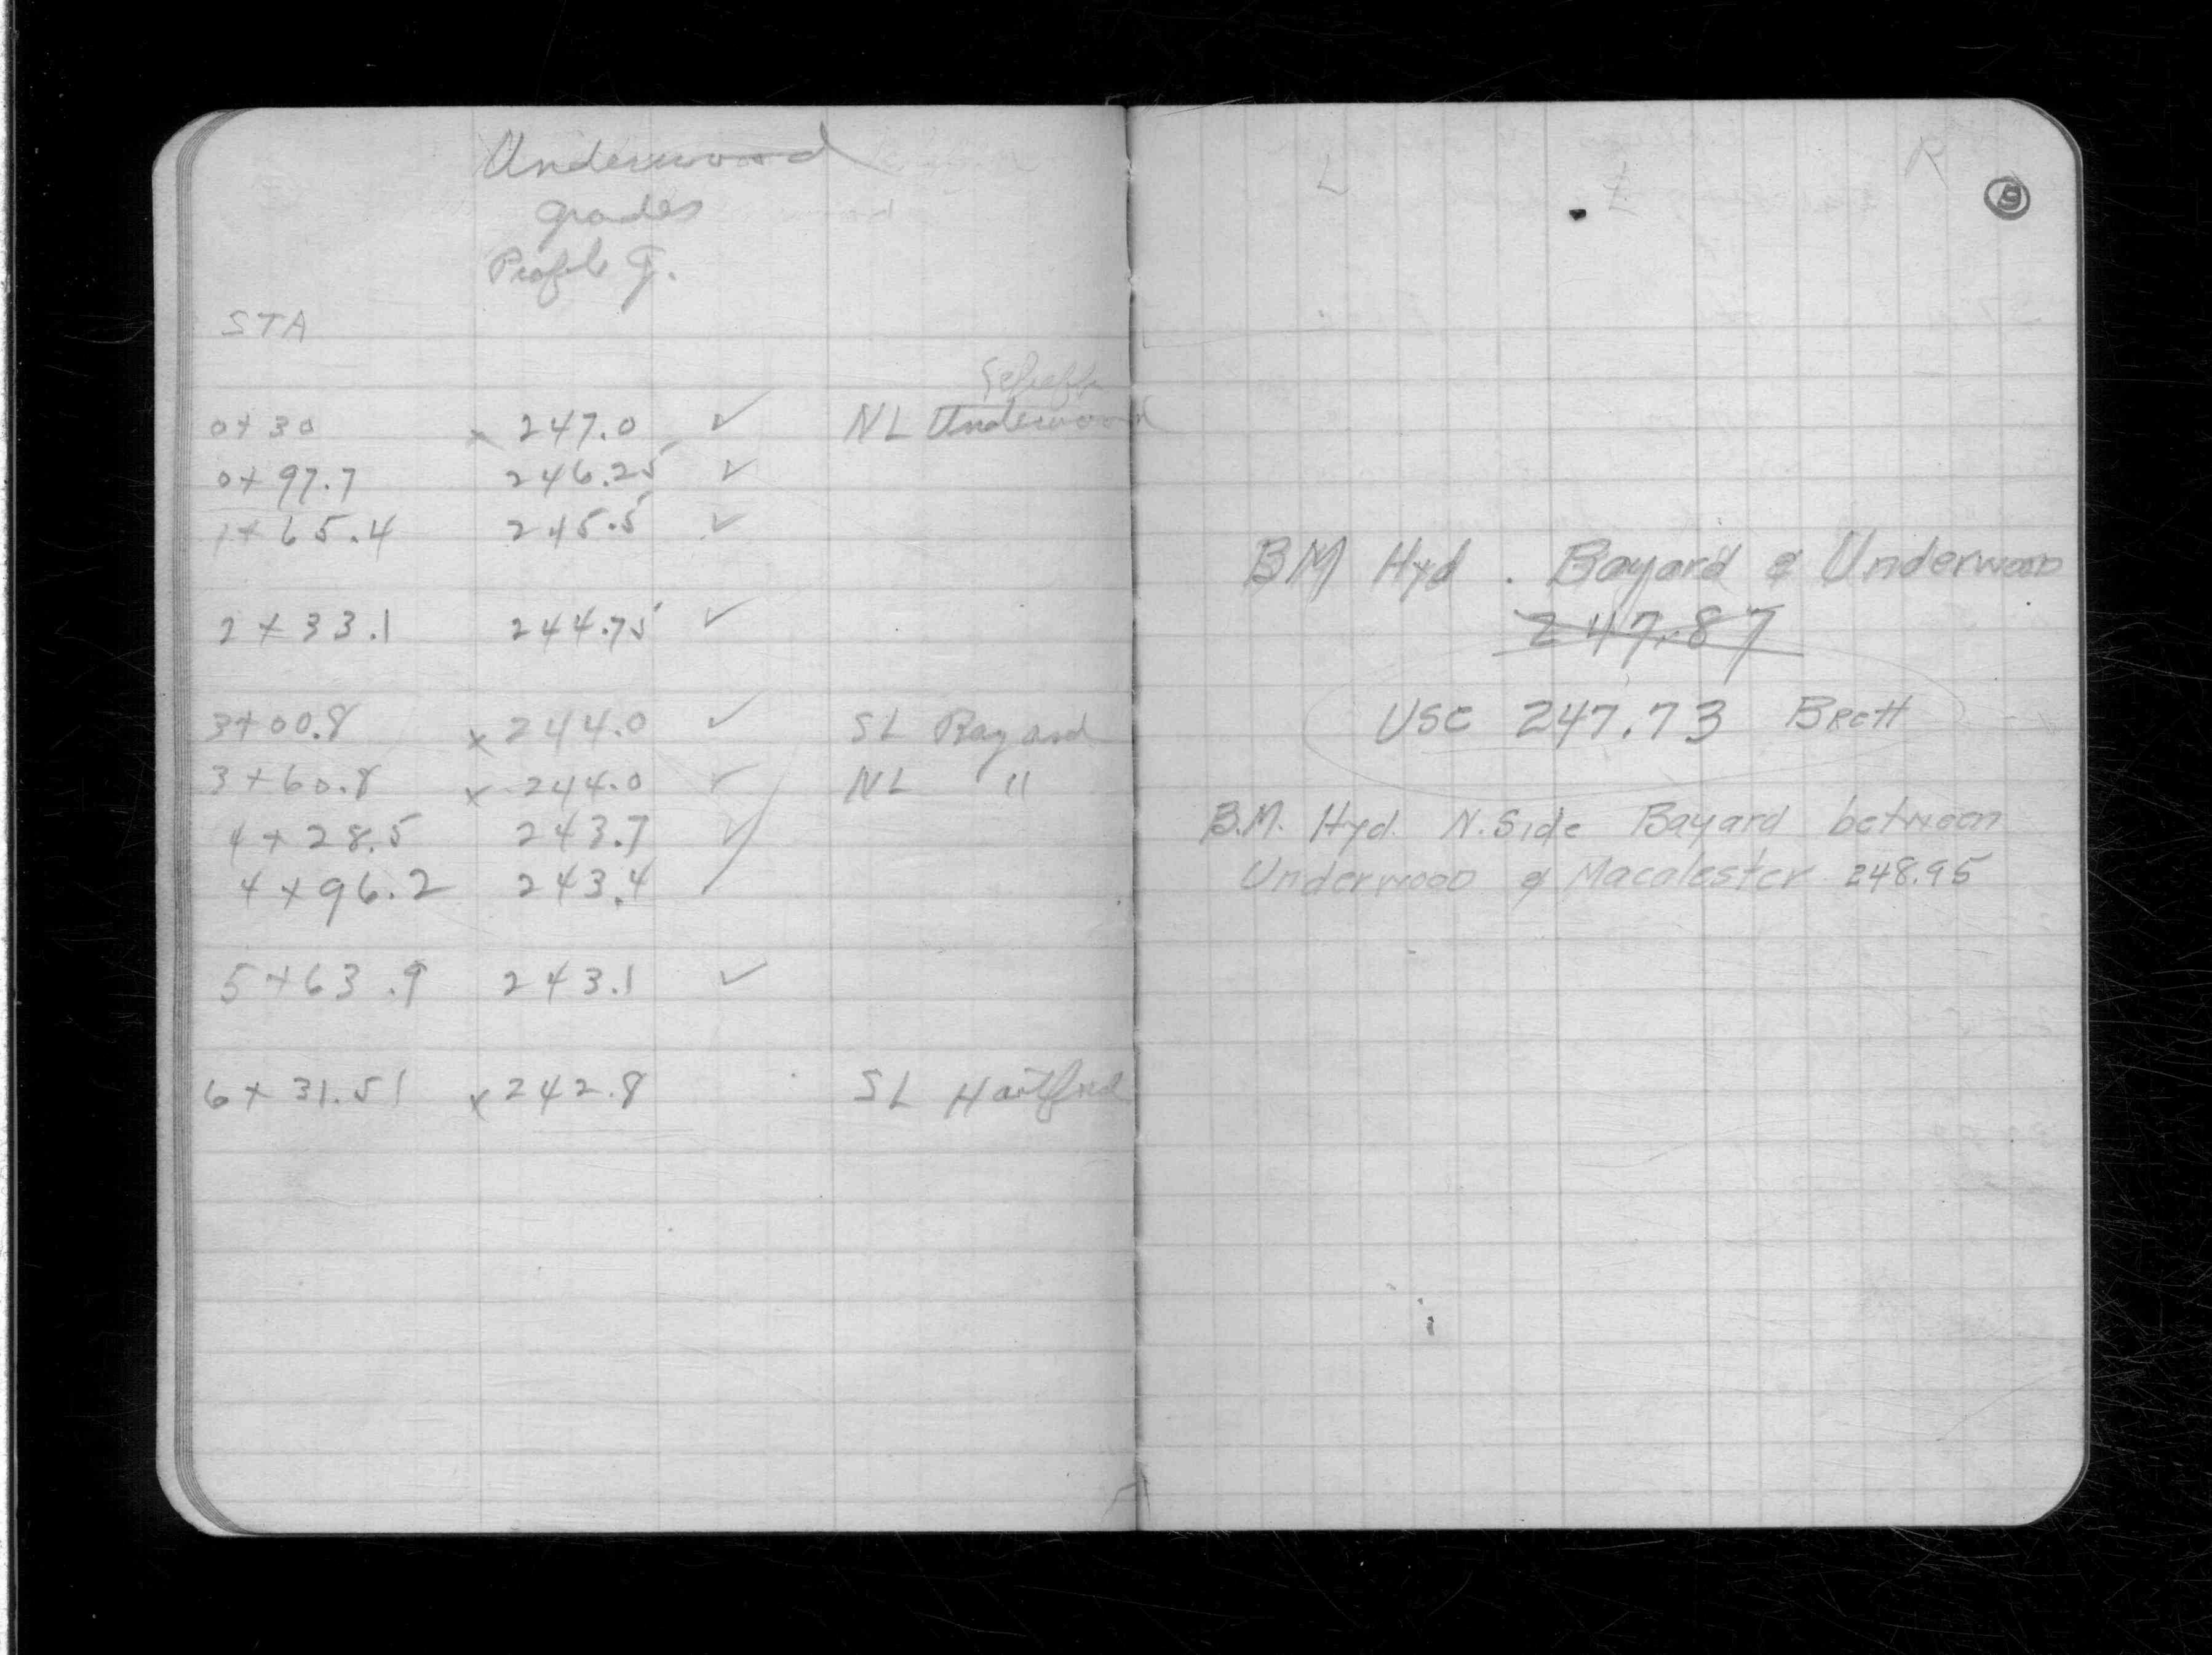 Underwood
grades
Profile G.
STA
0+30 x 247.0 ✓ NL Underwood
0+97.7 246.25 ✓
1+65.4 245.5 ✓
2+33.1 244.75 ✓
3+00.8 x 244.0 ✓ SL Bayard
3+60.8 x 244.0 ✓ NL "
4+28.5 243.7 ✓
4+96.2 243.4 ✓
5+63.9 243.1 ✓
6+31.51 x 242.8 SL Hartford
L R
9
BM Hyd. Bayard & Underwood
247.87
USE 247.73 Brett
B.M. Hyd. N. Side Bayard between
Underwood & Macalester 248.95